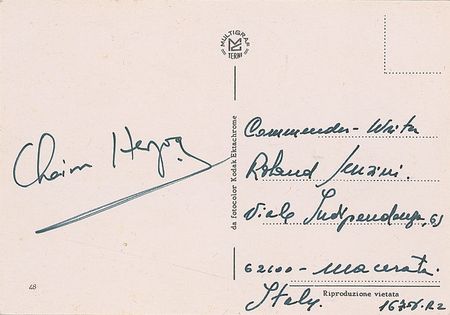 MULTIGRAF
TERNI
da fotocolor Kodak Ektachrome
Chaim Herzog
Commander - Writer
Roland
Viale Indipendenza, 61
62100 - Macerata.
Italy.
48
Riproduzione vietata